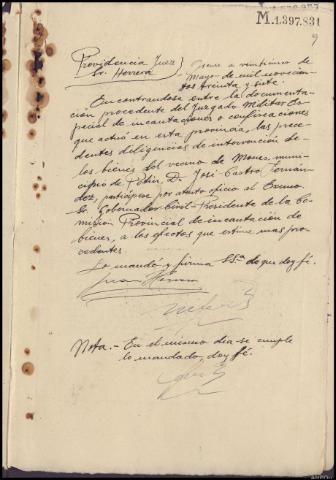 M.1.397.831
9
Providencia Juez
Sr. Herrera
a veintiuno de
Mayo de mil novecien-
tos treinta y siete.
Encontrandose entre la documenta-
ción procedente del Juzgado Militar Es-
pecial de incautaciones o confiscaciones
que actuó en esta provincia, las prece-
dentes diligencias de intervención de
los bienes del vecino de Mones, muni-
cipio de Petín, D. José Castro Fernán-
dez, atento oficio al Excmo.
Sr. Gobernador Civil-Presidente de la Co-
misión Provincial de incautación de
bienes, a los efectos que estime mas pro-
cedentes.
Lo mandó y firma SSª. doy fé.
Nota.- En el mismo dia se cumple
lo mandado, doy fé.